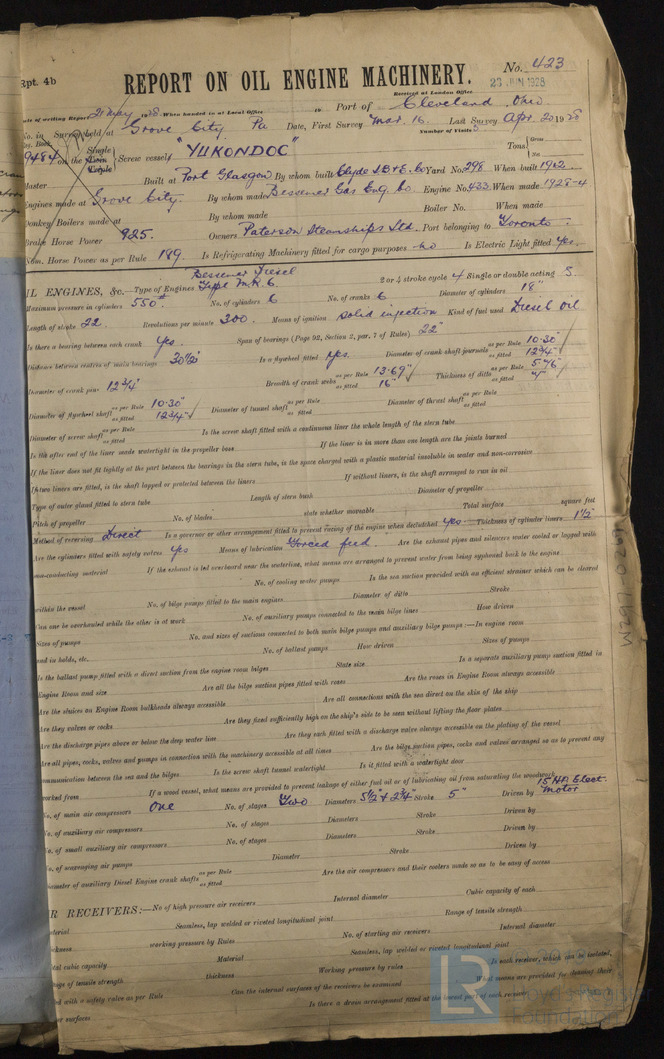 Rpt. 4b
No. 423
REPORT ON OIL ENGINE MACHINERY.
23 JUN 1928
Received at London Office
Date of writing Report 21 May 1928 When handed in at Local Office 10 Port of Cleveland, Ohio.
No. in Survey held at Grove City Pa Date, First Survey Mar. 16. Last Survey Apr. 20 1928
Reg. Book. Number of Visits
9484 on the Single Twin Triple Screw vessel "YUKONDOC" Tons Gross Net
Master Built at Port Glasgow By whom built Clyde S.B. & E. Co Yard No. 298 When built 1902
Engines made at Grove City. By whom made Bessemer Gas Eng. Co Engine No. 433 When made 1928-4
Donkey Boilers made at By whom made Boiler No. When made
Brake Horse Power 925. Owners Paterson Steamships Ltd. Port belonging to Toronto.
Nom. Horse Power as per Rule 189. Is Refrigerating Machinery fitted for cargo purposes no Is Electric Light fitted yes.
Bessemer Diesel
OIL ENGINES, &c. Type of Engines Type M.R. 6. 2 or 4 stroke cycle 4 Single or double acting S.
Maximum pressure in cylinders 550# No. of cylinders 6 No. of cranks 6 Diameter of cylinders 18"
Length of stroke 22 Revolutions per minute 300. Means of ignition solid injection Kind of fuel used Diesel oil
Is there a bearing between each crank yes. Span of bearings (Page 92, Section 2, par. 7 of Rules) 22"
Distance between centres of main bearings 30 1/2" Is a flywheel fitted yes. Diameter of crank shaft journals as per Rule 10.30" as fitted 12 3/4"
Diameter of crank pins 12 3/4" Breadth of crank webs as per Rule 13.69" as fitted 16" Thickness of ditto as per Rule as fitted
Diameter of flywheel shaft as per Rule 10.30" as fitted 12 3/4" Diameter of tunnel shaft as per Rule as fitted Diameter of thrust shaft as per Rule as fitted
Diameter of screw shaft as per Rule as fitted Is the screw shaft fitted with a continuous liner the whole length of the stern tube
Is the after end of the liner made watertight in the propeller boss If the liner is in more than one length are the joints burned
If the liner does not fit tightly at the part between the bearings in the stern tube, is the space charged with a plastic material insoluble in water and non-corrosive
If two liners are fitted, is the shaft lapped or protected between the liners If without liners, is the shaft arranged to run in oil
Type of outer gland fitted to stern tube Length of stern bush Diameter of propeller
Pitch of propeller No. of blades state whether moveable Total surface square feet
Method of reversing Direct Is a governor or other arrangement fitted to prevent racing of the engine when declutched yes Thickness of cylinder liners 1 1/2"
Are the cylinders fitted with safety valves yes Means of lubrication Forced feed. Are the exhaust pipes and silencers water cooled or lagged with
non-conducting material If the exhaust is led overboard near the waterline, what means are arranged to prevent water from being syphoned back to the engine
No. of cooling water pumps Is the sea suction provided with an efficient strainer which can be cleared
within the vessel No. of bilge pumps fitted to the main engines Diameter of ditto Stroke
Can one be overhauled while the other is at work No. of auxiliary pumps connected to the main bilge lines How driven
Sizes of pumps No. and sizes of suctions connected to both main bilge pumps and auxiliary bilge pumps:—In engine room
and in holds, etc. No. of ballast pumps How driven Sizes of pumps
Is the ballast pump fitted with a direct suction from the engine room bilges State size Is a separate auxiliary pump suction fitted in
Engine Room and size Are all the bilge suction pipes fitted with roses Are the roses in Engine Room always accessible
Are the sluices on Engine Room bulkheads always accessible Are all connections with the sea direct on the skin of the ship
Are they valves or cocks Are they fixed sufficiently high on the ship's side to be seen without lifting the floor plates
Are the discharge pipes above or below the deep water line Are they each fitted with a discharge valve always accessible on the plating of the vessel
Are all pipes, cocks, valves and pumps in connection with the machinery accessible at all times Are the bilge suction pipes, cocks and valves arranged so as to prevent any
communication between the sea and the bilges Is the screw shaft tunnel watertight Is it fitted with a watertight door
worked from If a wood vessel, what means are provided to prevent leakage of either fuel oil or of lubricating oil from saturating the woodwork
No. of main air compressors One No. of stages Two Diameters 5 1/2" & 2 3/4" Stroke 5" Driven by 15 HP. Elect. motor
No. of auxiliary air compressors No. of stages Diameters Stroke Driven by
No. of small auxiliary air compressors No. of stages Diameters Stroke Driven by
No. of scavenging air pumps Diameter Stroke Driven by
Diameter of auxiliary Diesel Engine crank shafts as per Rule as fitted Are the air compressors and their coolers made so as to be easy of access
R RECEIVERS:—No of high pressure air receivers Internal diameter Cubic capacity of each
material Seamless, lap welded or riveted longitudinal joint Range of tensile strength
thickness working pressure by Rules No. of starting air receivers Internal diameter
total cubic capacity Material Seamless, lap welded or riveted longitudinal joint
range of tensile strength thickness Working pressure by rules Is each receiver, which can be isolated,
fitted with a safety valve as per Rule Can the internal surfaces of the receivers be examined What means are provided for cleaning their
inner surfaces Is there a drain arrangement fitted at the lowest part of each receiver
© 2019
LR
Lloyd's Register
Foundation